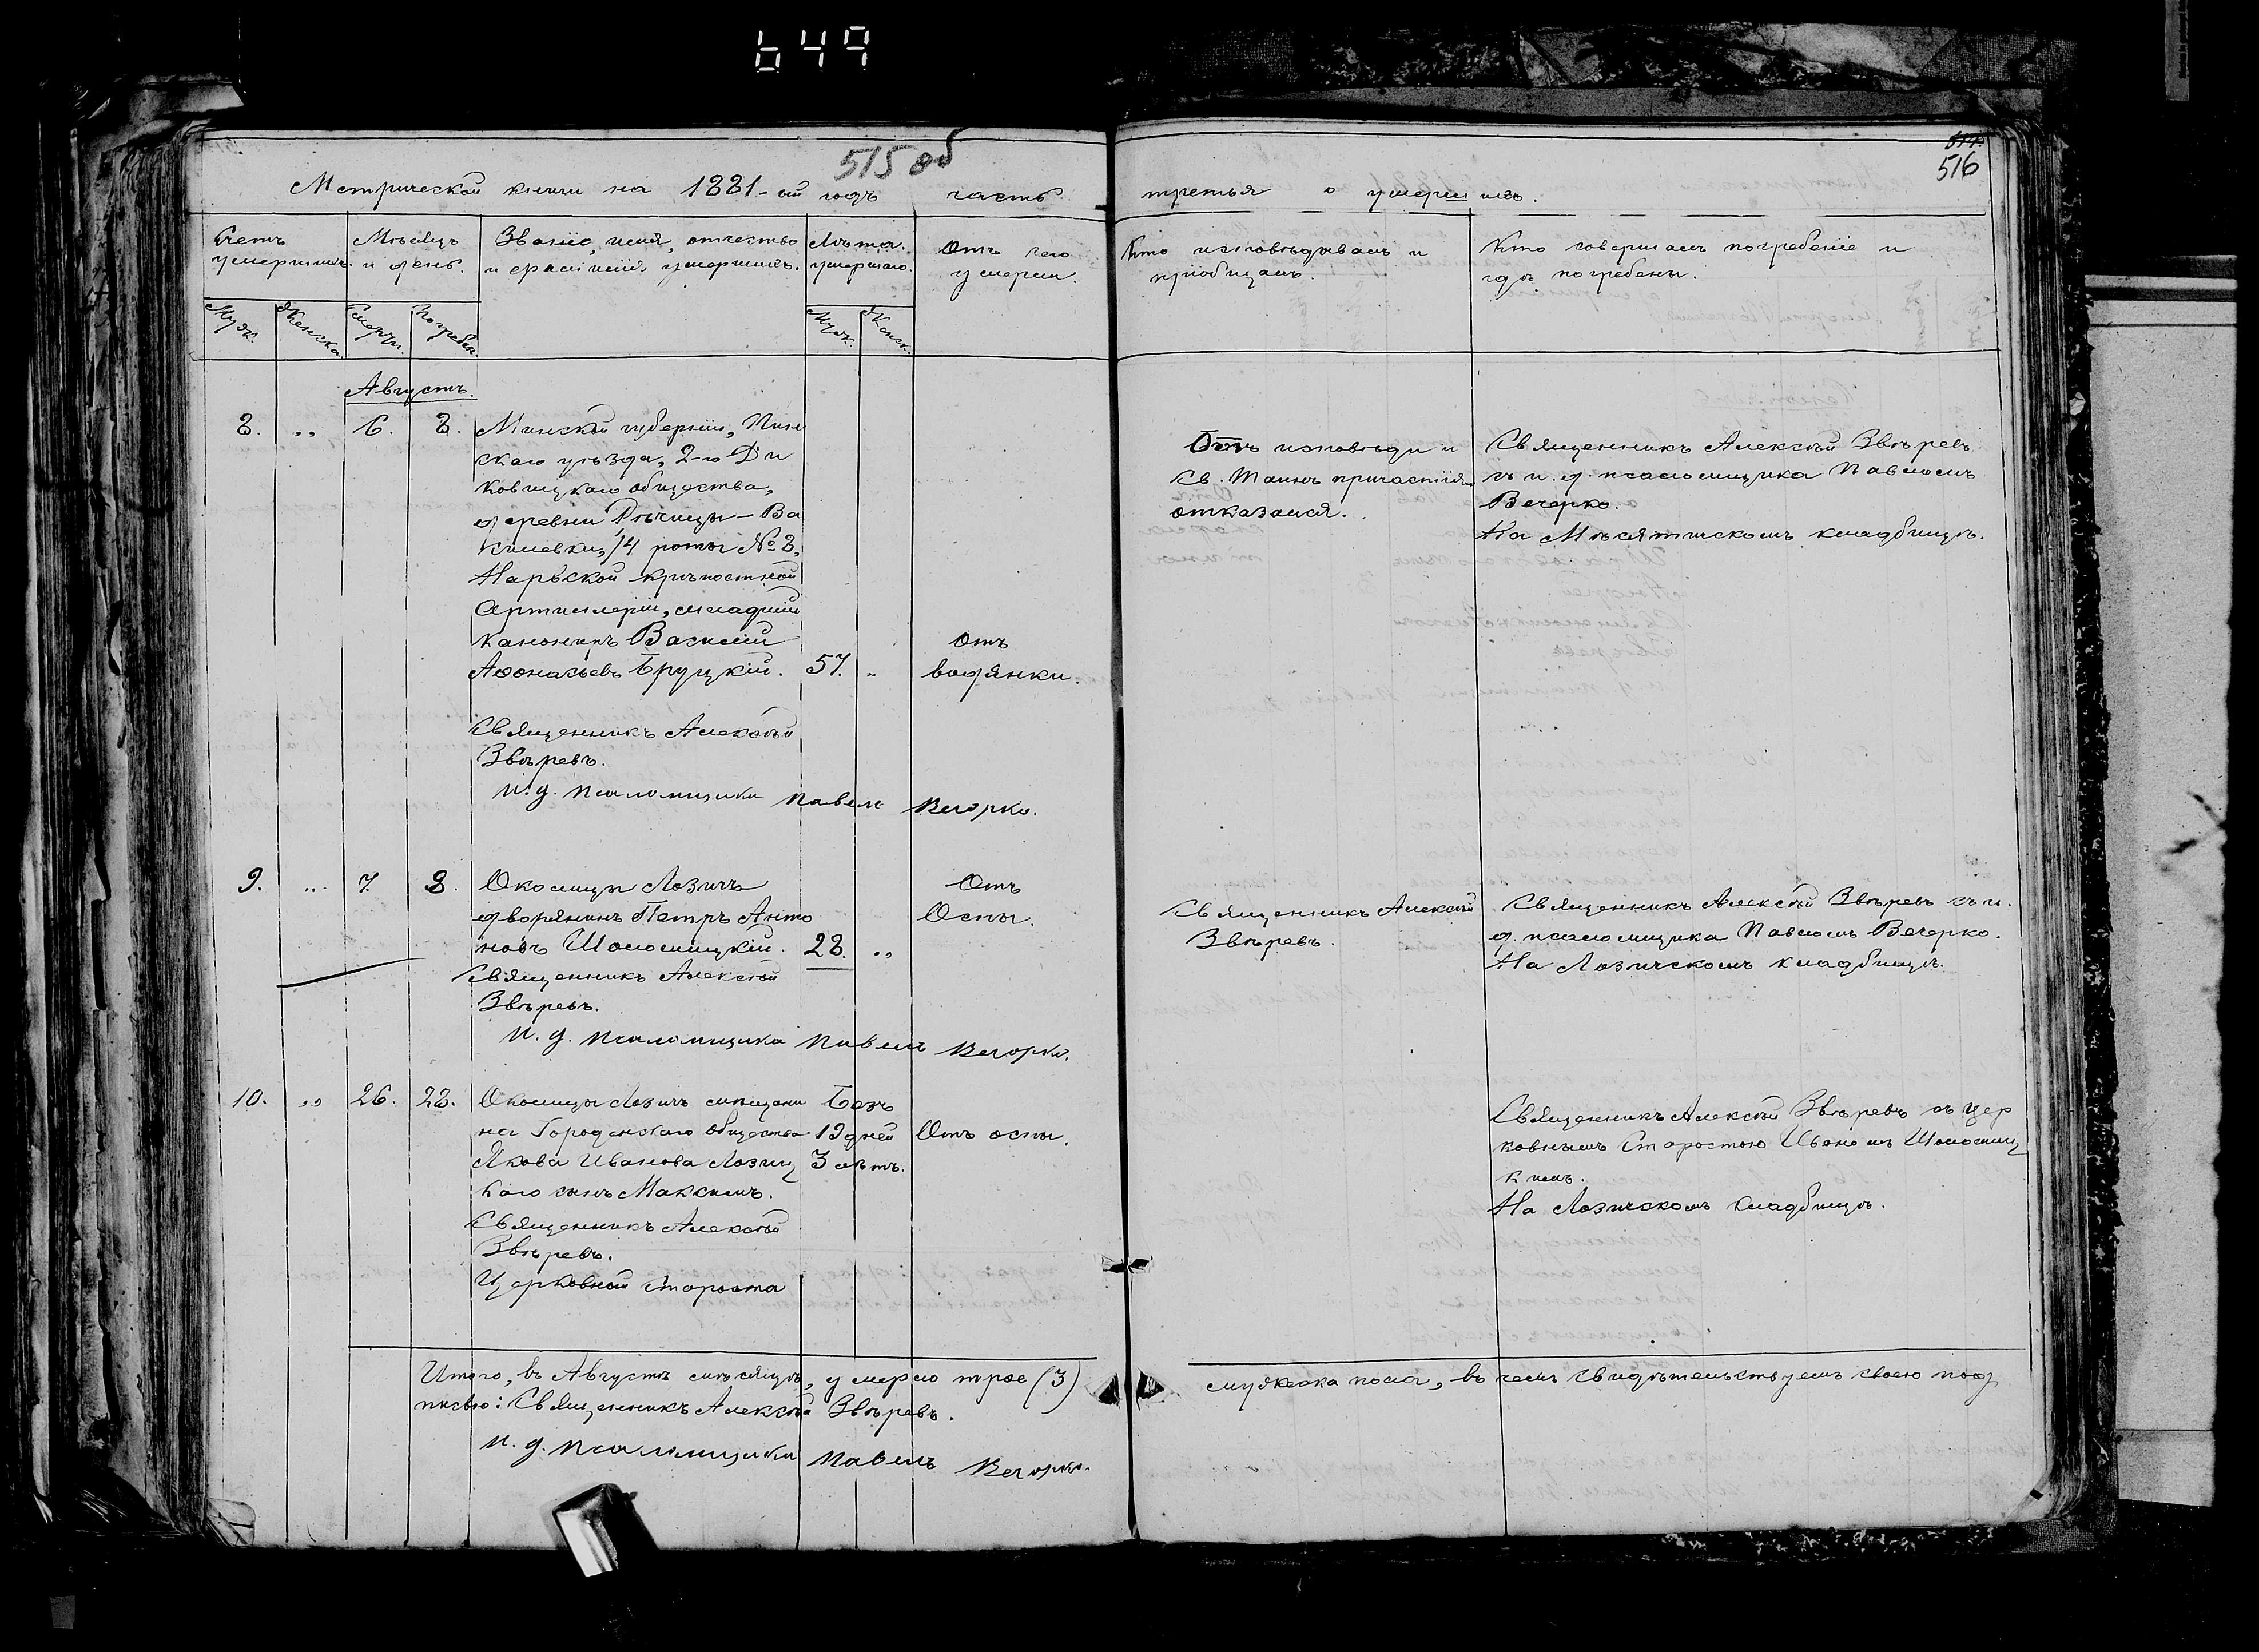 649
515 об
516
Метрической книги на 1881-ый годъ часть третья о умершихъ.
Счетъ умершихъ.
Мужс.
Женска.
Мѣсяцъ и день.
Смерти.
Погребен.
Званіе, имя, отчество
и фамилія умершихъ.
Лѣта умершаго.
Муж.
Женск.
Отъ чего
умеръ.
Кто исповѣдывалъ и
пріобщалъ.
Кто совершалъ погребеніе и
гдѣ погребены.
Августъ.
8. „ 6. 8.
Минской губерніи, Пин
скаго уѣзда, 2-го Ди
ковицкаго общества,
деревни Рѣчицы-Ва
14 роты № 8,
Нарвской крѣпостной
Артиллеріи, младшій
канониръ Василій
Аѳонасьевъ Бруцкій. 57. „
Отъ
водянки.
Отъ исповѣди и
Св. Таинъ причастія
отказался.
Священникъ Алексѣй Звѣревъ
съ и. д. псаломщика Павломъ
Вечорко.
На Мѣсятическомъ кладбищѣ.
Священникъ Алексѣй
Звѣревъ.
И. д. псаломщика Павелъ Вечорко.
9. „ 7. 8.
Околицы Лозичъ
дворянинъ Петръ Анто
новъ Шоломицкій. 28. „
Отъ
Оспы.
Священникъ Алексѣй
Звѣревъ.
Священникъ Алексѣй Звѣревъ съ и.
д. псаломщика Павломъ Вечорко.
На Лозичскомъ кладбищѣ.
Священникъ Алексѣй
Звѣревъ.
И. д. псаломщика Павелъ Вечорко.
10. „ 26. 28.
Околицы Лозичъ мѣщани
на Городенскаго общества
Якова Иванова Лозиц
каго сынъ Максимъ.
Безъ
19 дней
3 лѣтъ.
Отъ оспы.
Священникъ Алексѣй Звѣревъ съ цер
ковнымъ Старостою Иваномъ Шоломиц
кимъ.
На Лозичскомъ кладбищѣ.
Священникъ Алексѣй
Звѣревъ.
Церковный Староста
Итого, въ Августѣ мѣсяцѣ, умерло трое (3) мужеска пола, въ чемъ свидѣтельствуемъ своею под
писью: Священникъ Алексѣй Звѣревъ.
И. д. псаломщика Павелъ Вечорко.